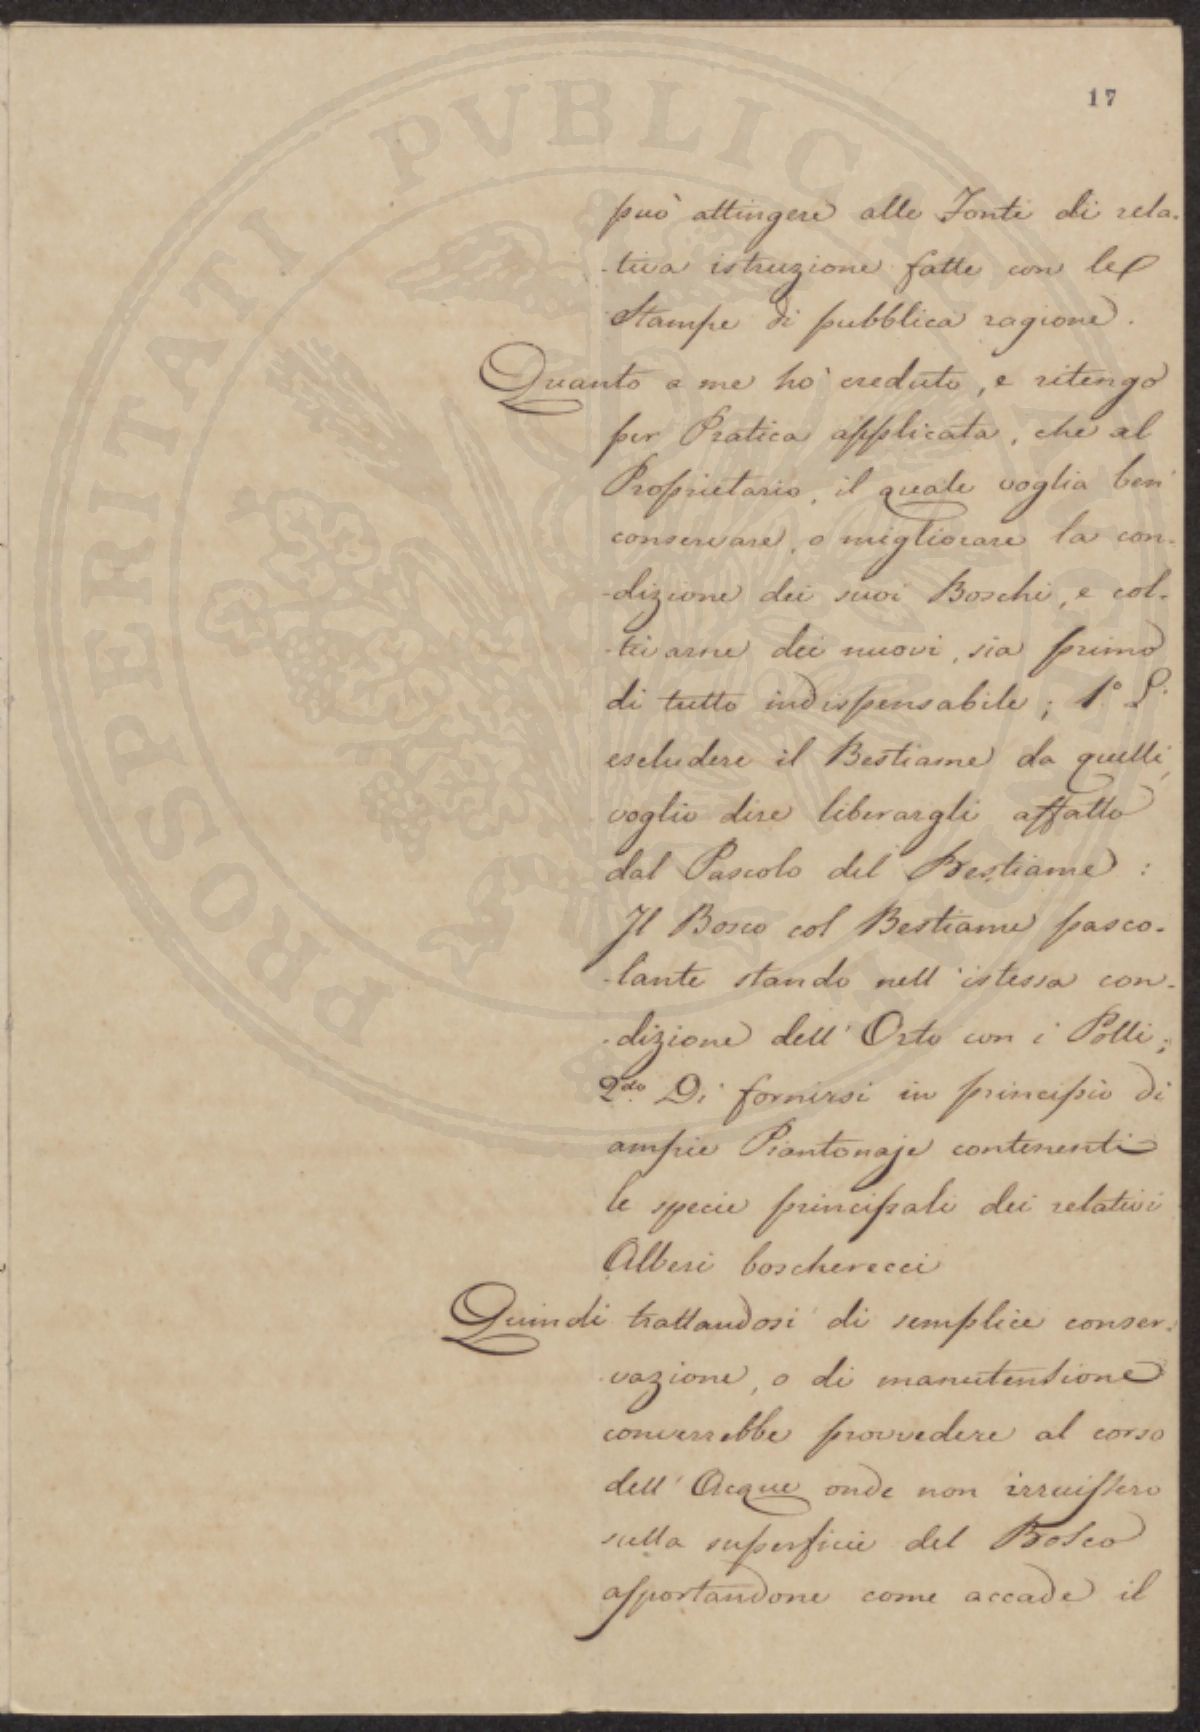 17
può attingere alle Fonti di rela-
-tiva istruzione fatte con le
Stampe di pubblica ragione.
Quanto a me ho creduto, e ritengo
per Pratica applicata, che al
Proprietario, il quale voglia ben
conservare, o migliorare la con-
-dizione dei suoi Boschi, e col-
-tivarne dei nuovi, sia primo
di tutto indispensabile; 1° L'
escludere il Bestiame da quelli,
voglio dire liberargli affatto
dal Pascolo del Bestiame:
Il Bosco col Bestiame pasco-
-lante stando nell'istessa con-
-dizione dell'Orto con i Polli;
2do Di fornirsi in principio di
ampie Piantonaje contenenti
le specie principali dei relativi
Alberi boscherecci
Quindi trattandosi di semplice conser-
-vazione, o di manutensione
converrebbe provvedere al corso
dell'Acque onde non irruissero
sulla superficie del Bosco
apportandone come accade il
PROSPERITATI PVBLICAE